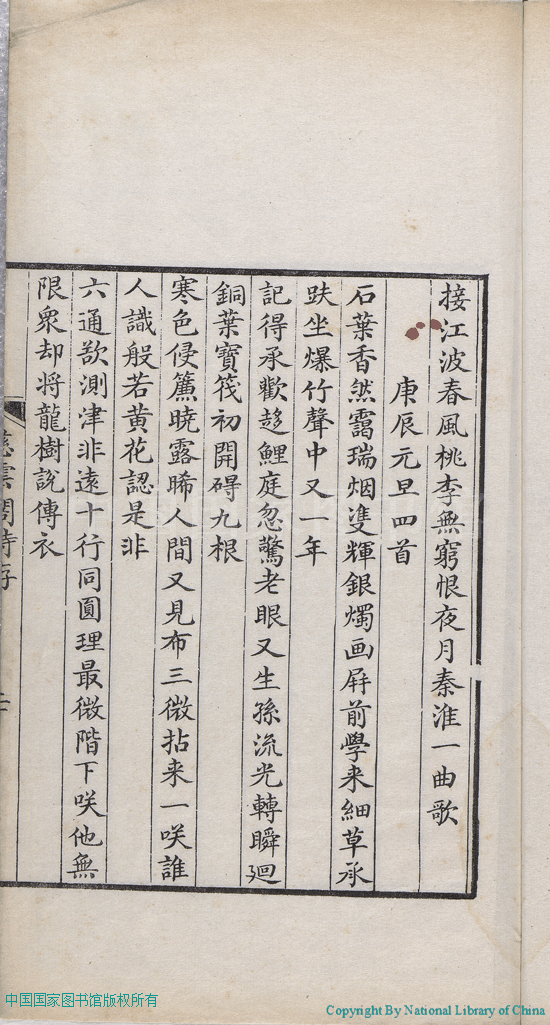 接江波春風桃李無窮恨夜月秦淮一曲歌
庚辰元旦四首
石葉香然靄瑞烟雙輝銀燭画屛前學来細草承
趺坐爆竹聲中又一年
記得承歡趍鯉庭忽驚老眼又生孫流光轉瞬廻
銅葉寶筏初開碍九根
寒色侵簾曉露晞人間又見布三微拈来一咲誰
人識般若黄花認是非
六通歘測津非遠十行同圓理最微階下咲他無
限衆却将龍樹說傳衣
慈雲閣詩存
中国国家图书馆版权所有
Copyright By National Library of China